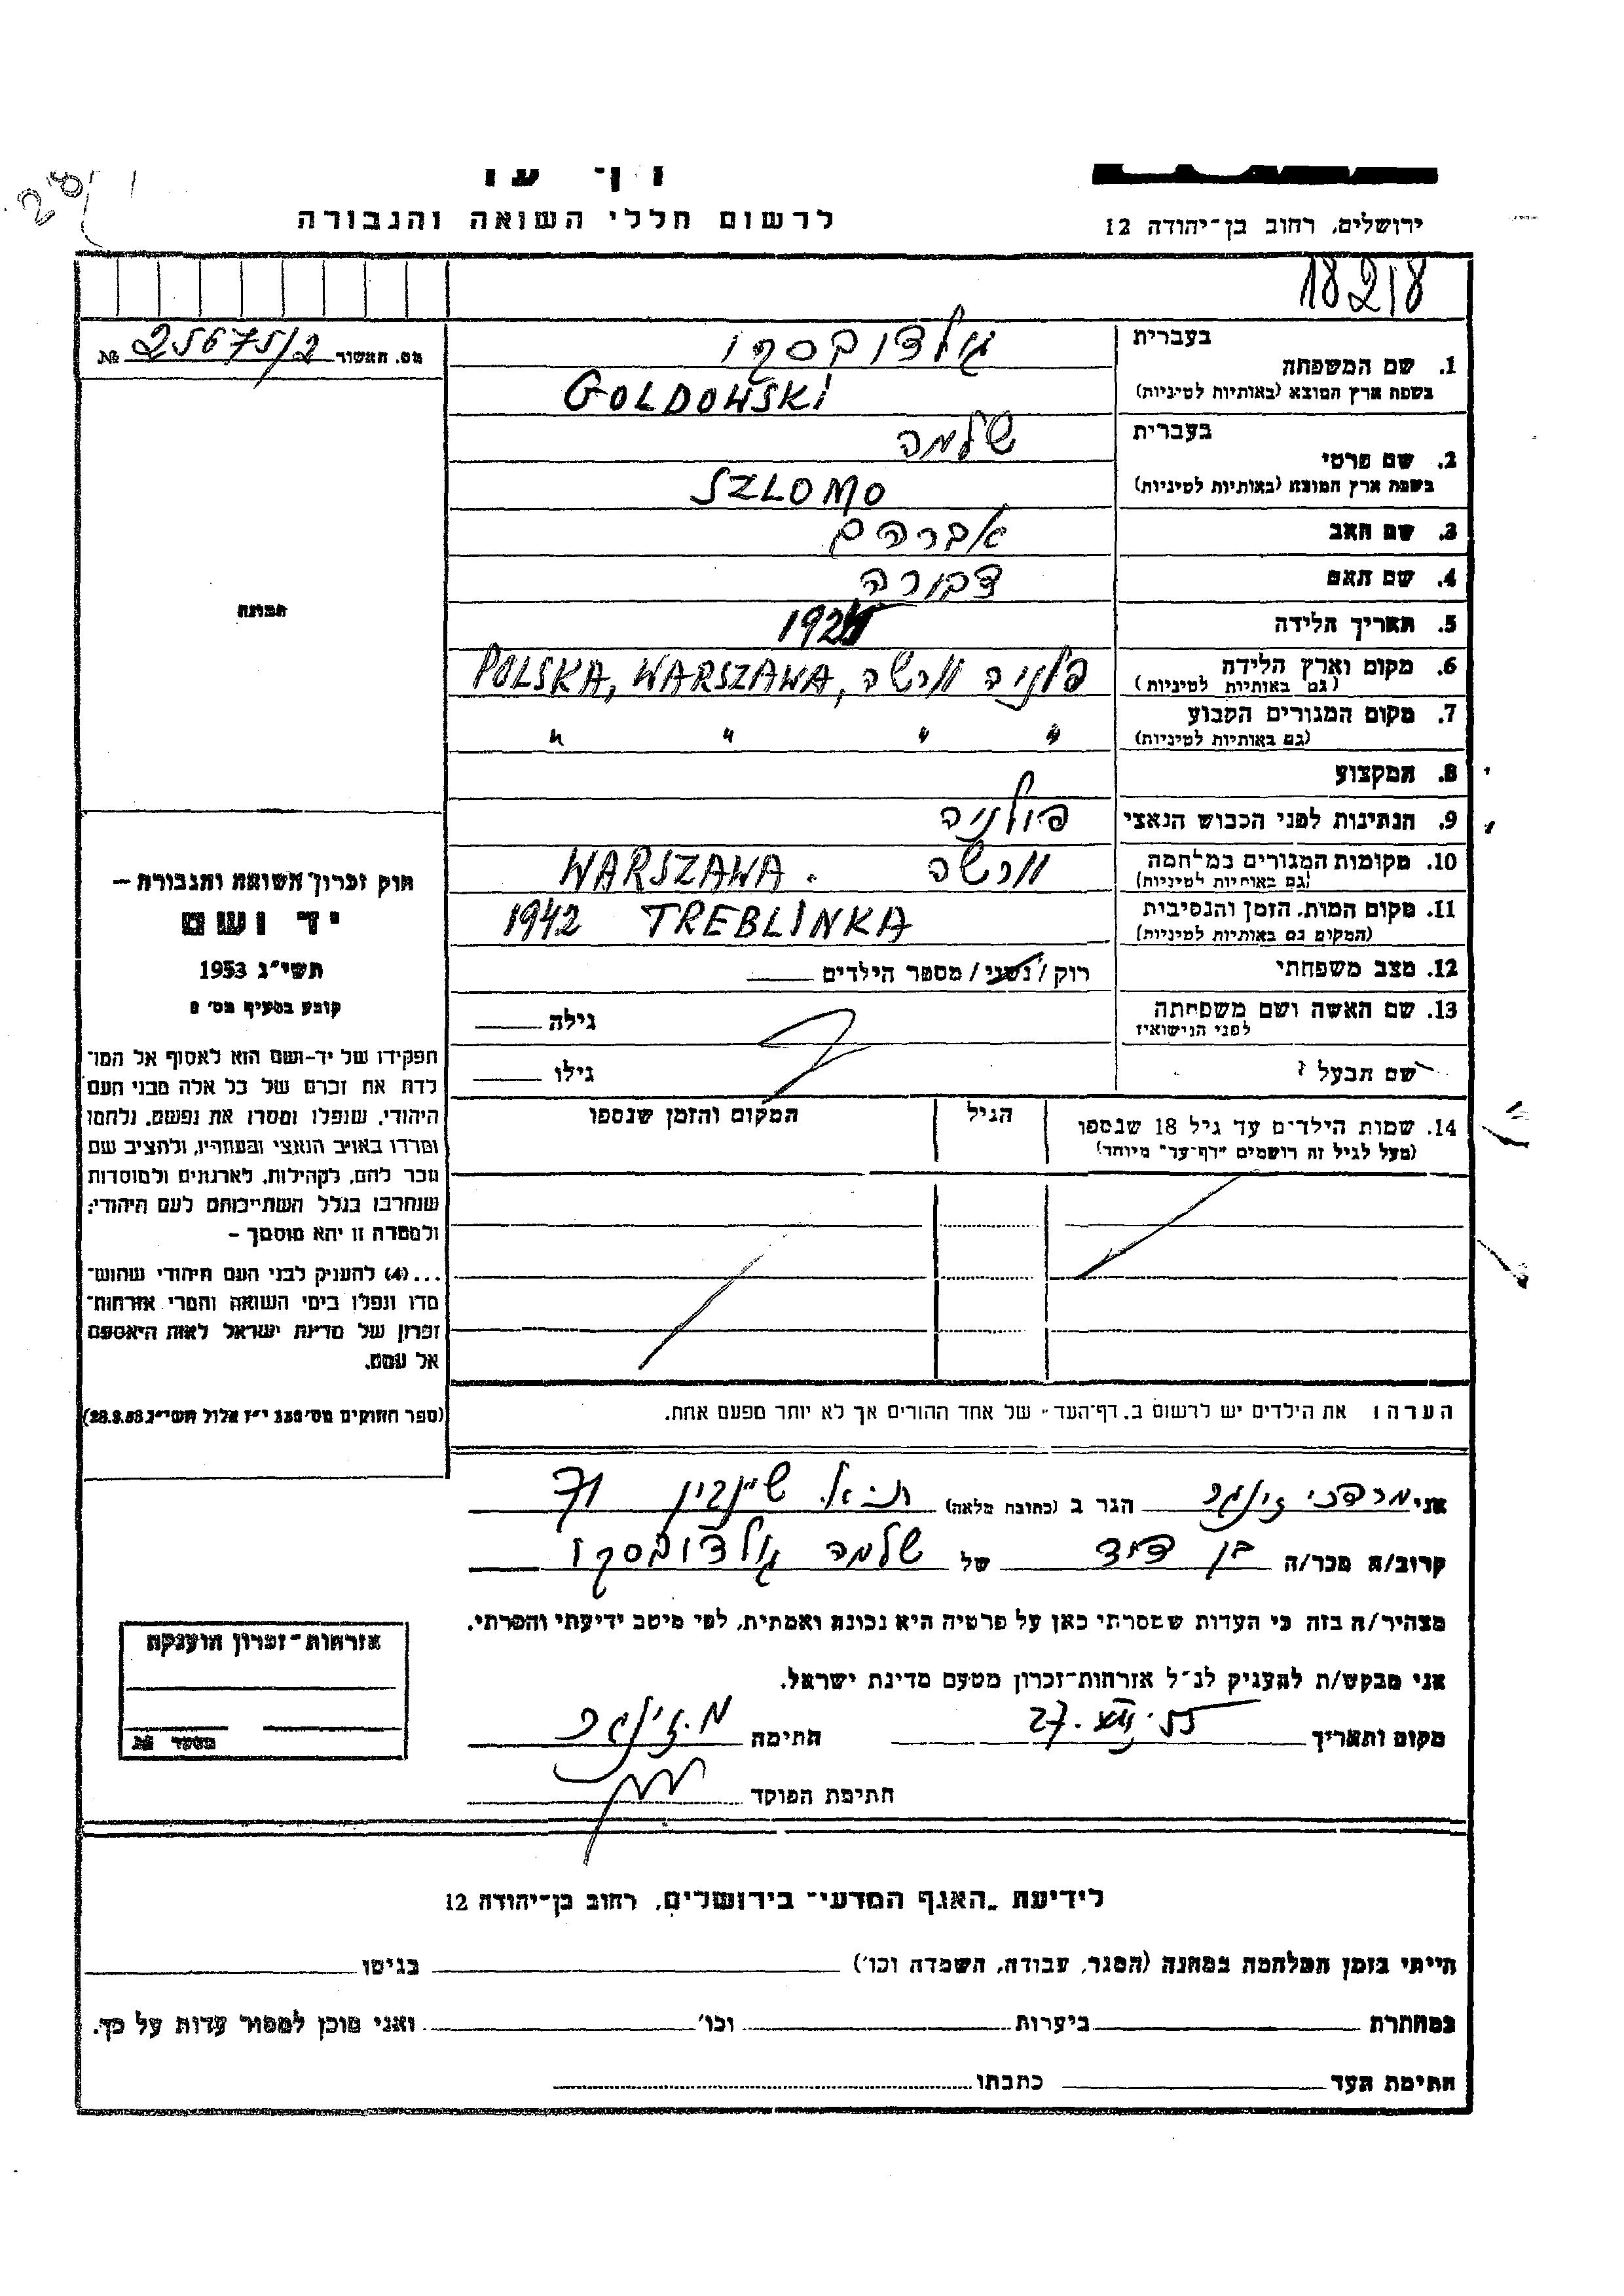 דף עד
לרשום חללי השואה והגבורה
ירושלים, רחוב בן־יהודה 12
28
18218
מס. האשור 25675/2 №
תמונה
חוק זכרון השואה והגבורה —
יד ושם
תשי"ג 1953
קובע בסעיף מס' 2
תפקידו של יד-ושם הוא לאסוף אל המו־
לדת את זכרם של כל אלה מבני העם
היהודי, שנפלו ומסרו את נפשם, נלחמו
ומרדו באויב הנאצי ובעוזריו, ולהציב שם
וזכר להם, לקהילות, לארגונים ולמוסדות
שנחרבו בגלל השתייכותם לעם היהודי;
ולמטרה זו יהא מוסמך —
...(4) להעניק לבני העם היהודי שהוש־
מדו ונפלו בימי השואה והמרי אזרחות־
זכרון של מדינת ישראל לאות היאספם
אל עמם.
(ספר החוקים מס' 132 י"ז אלול תשי"ג 28.8.53)
בעברית גולדובסקי
1. שם המשפחה
בשפת ארץ המוצא (באותיות לטיניות) GOLDOWSKI
בעברית שלמה
2. שם פרטי
בשפת ארץ המוצא (באותיות לטיניות) SZLOMO
3. שם האב אברהם
4. שם האם דבורה
5. תאריך הלידה
6. מקום וארץ הלידה פלניה וורשה, POLSKA, WARSZAWA
(גם באותיות לטיניות)
7. מקום המגורים הקבוע " " " "
(גם באותיות לטיניות)
8. המקצוע
9. הנתינות לפני הכבוש הנאצי פולניה
10. מקומות המגורים במלחמה וורשה . WARSZAWA
(גם באותיות לטיניות)
11. מקום המות, הזמן והנסיבות 1942 TREBLINKA
(המקום גם באותיות לטיניות)
12. מצב משפחתי רוק / נשוי / מספר הילדים
13. שם האשה ושם משפחתה גילה
לפני הנישואין
שם הבעל גילו
14. שמות הילדים עד גיל 18 שנספו הגיל המקום והזמן שנספו
(מעל לגיל זה רושמים "דף־עד" מיוחד)
הערה: את הילדים יש לרשום ב"דף־העד" של אחד ההורים אך לא יותר מפעם אחת.
אני מרדכי זינגר הגר ב (כתובת מלאה) ת־א. שיינקין 71
קרוב/ה מכר/ה בן דוד של שלמה גולדובסקי
מצהיר/ה בזה כי העדות שמסרתי כאן על פרטיה היא נכונה ואמתית, לפי מיטב ידיעתי והכרתי.
אני מבקש/ת להעניק לנ"ל אזרחות־זכרון מטעם מדינת ישראל.
מקום ותאריך חתימה מ. זינגר
חתימת הפוקד
אזרחות־זכרון הוענקה
מספר №
לידיעת "האגף המדעי" בירושלים, רחוב בן־יהודה 12
הייתי בזמן המלחמה במחנה (הסגר, עבודה, השמדה וכו') בגיטו
במחתרת ביערות וכו' ואני מוכן למסור עדות על כך.
חתימת העד כתבתו